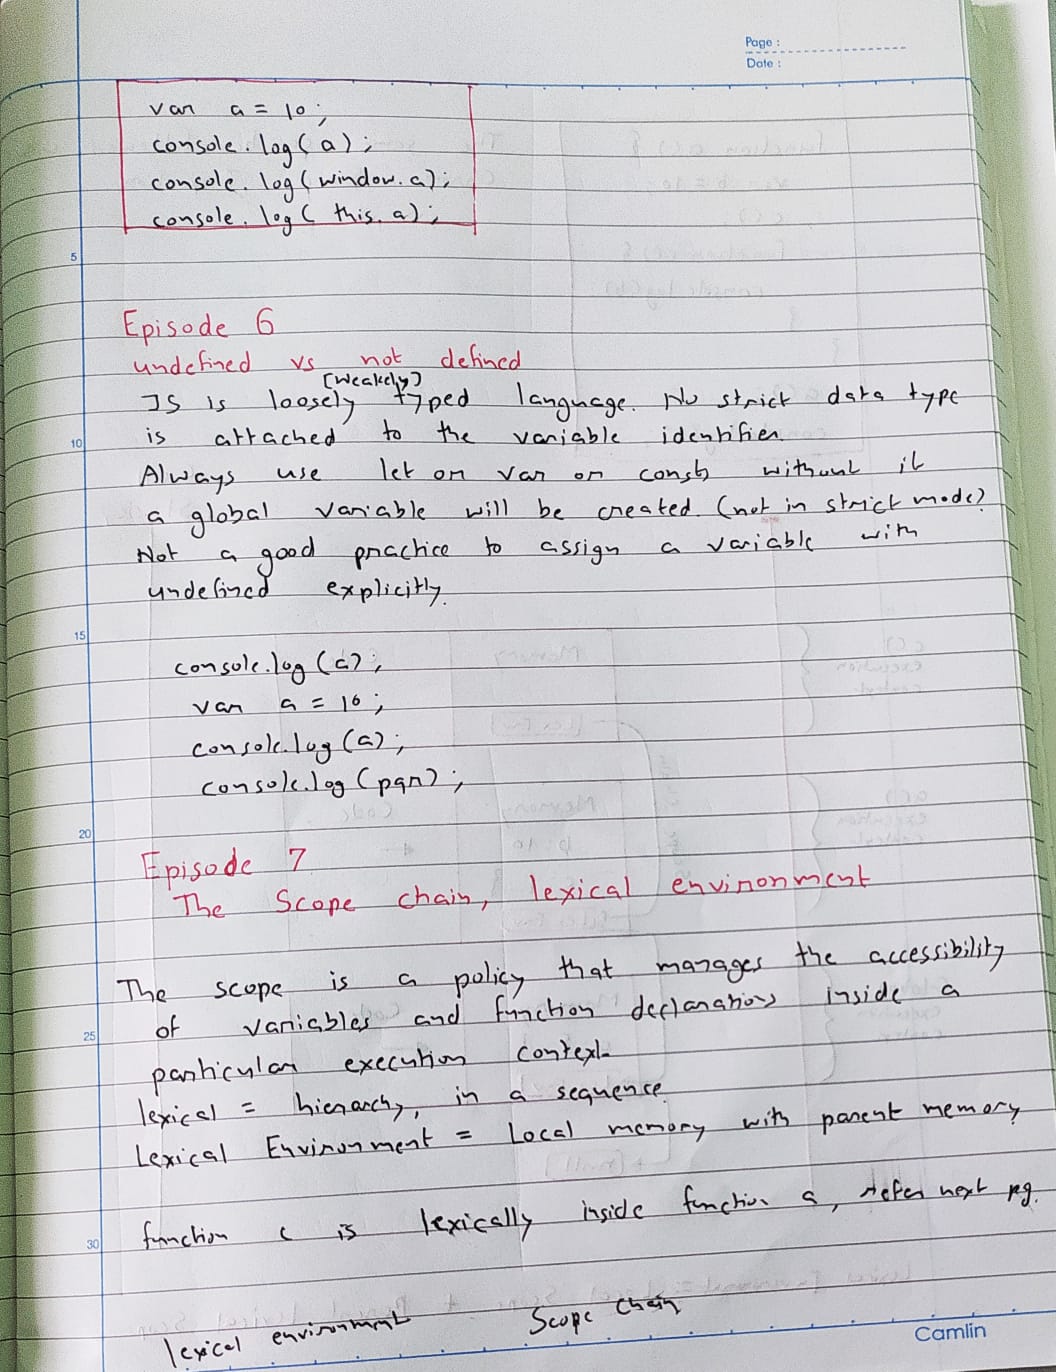 Page :
Date :
var a = 10;
console.log(a);
console.log(window.a);
console.log(this.a);
5
Episode 6
undefined vs not defined
[weakely]
JS is loosely typed language. No strict data type
10
is attached to the variable identifier.
Always use let or var or const, without it
a global variable will be created. (not in strict mode)
Not a good practice to assign a variable with
undefined explicitly.
15
console.log(a);
var a = 10;
console.log(a);
console.log(pqr);
20
Episode 7
The Scope chain, lexical environment
The scope is a policy that manages the accessibility
of variables and function declarations inside a
25
particular execution context
lexical = hierarchy, in a sequence.
Lexical Environment = Local memory with parent memory
function c is lexically inside function a, refer next pg.
30
lexical environment Scope chain
Camlin